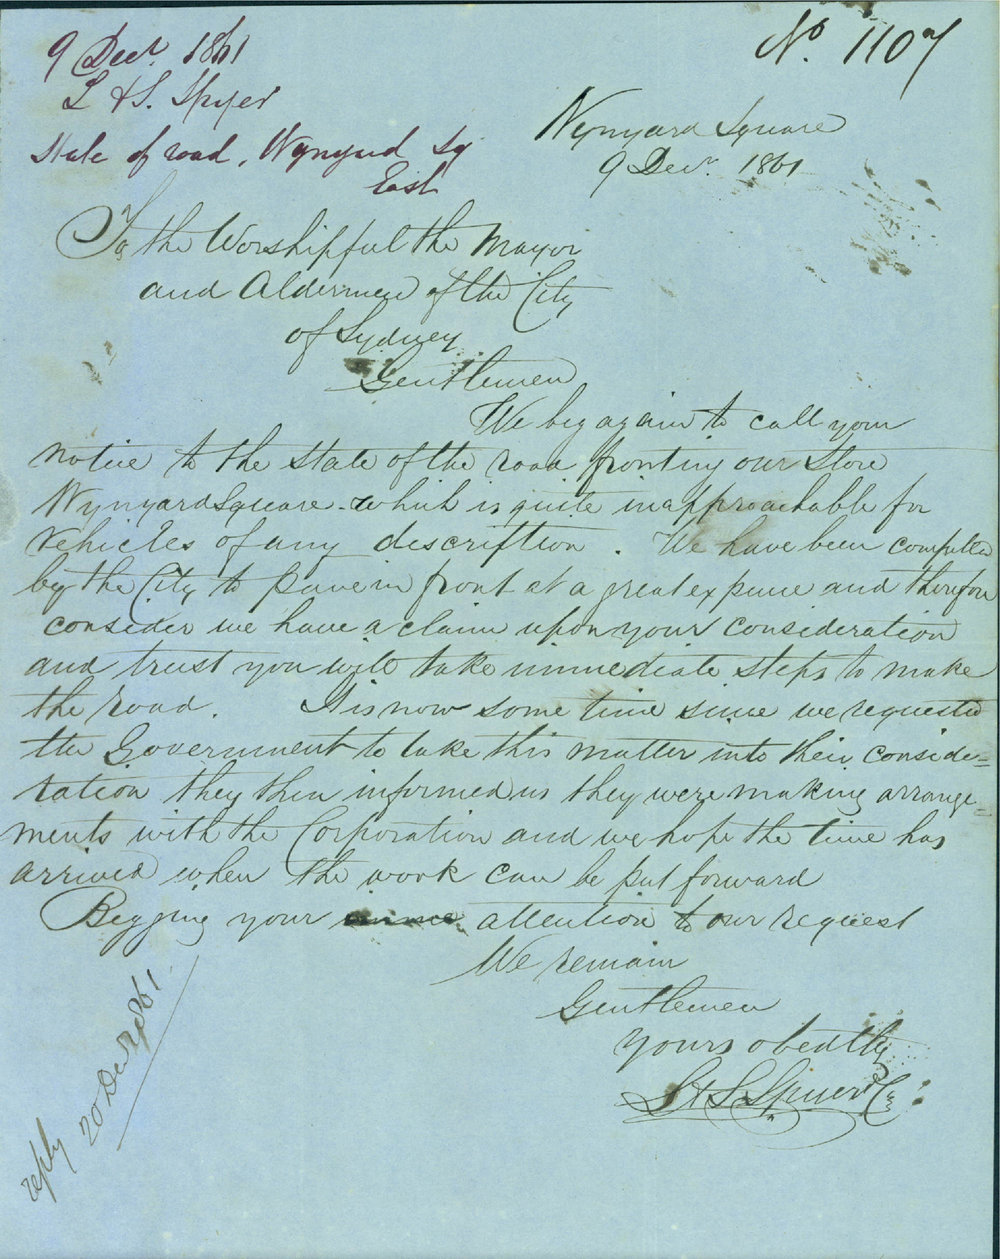 9 Decr. 1861
L & S. Spyer
State of road, Wynyard Sq
East
No. 1107
Wynyard Square
9 Decr. 1861
To the Worshipful the Mayor
and Aldermen of the City
of Sydney
Gentlemen
We beg again to call your
notice to the state of the road fronting our Store
Wynyard Square - which is quite inapproachable for
vehicles of any description. We have been compelled
by the City to pave in front at a great expense and therefore
consider we have a claim upon your consideration
and trust you will take immediate steps to make
the road. It is now some time since we requested
the Government to take this matter into their conside=
tation they then informed us they were making arrange
ments with the Corporation and we hope the time has
arrived when the work can be put forward
Begging your attention to our request
We remain
Gentlemen
Yours obedtly
L & S. Spyer & Co
reply 20 Decr 1861